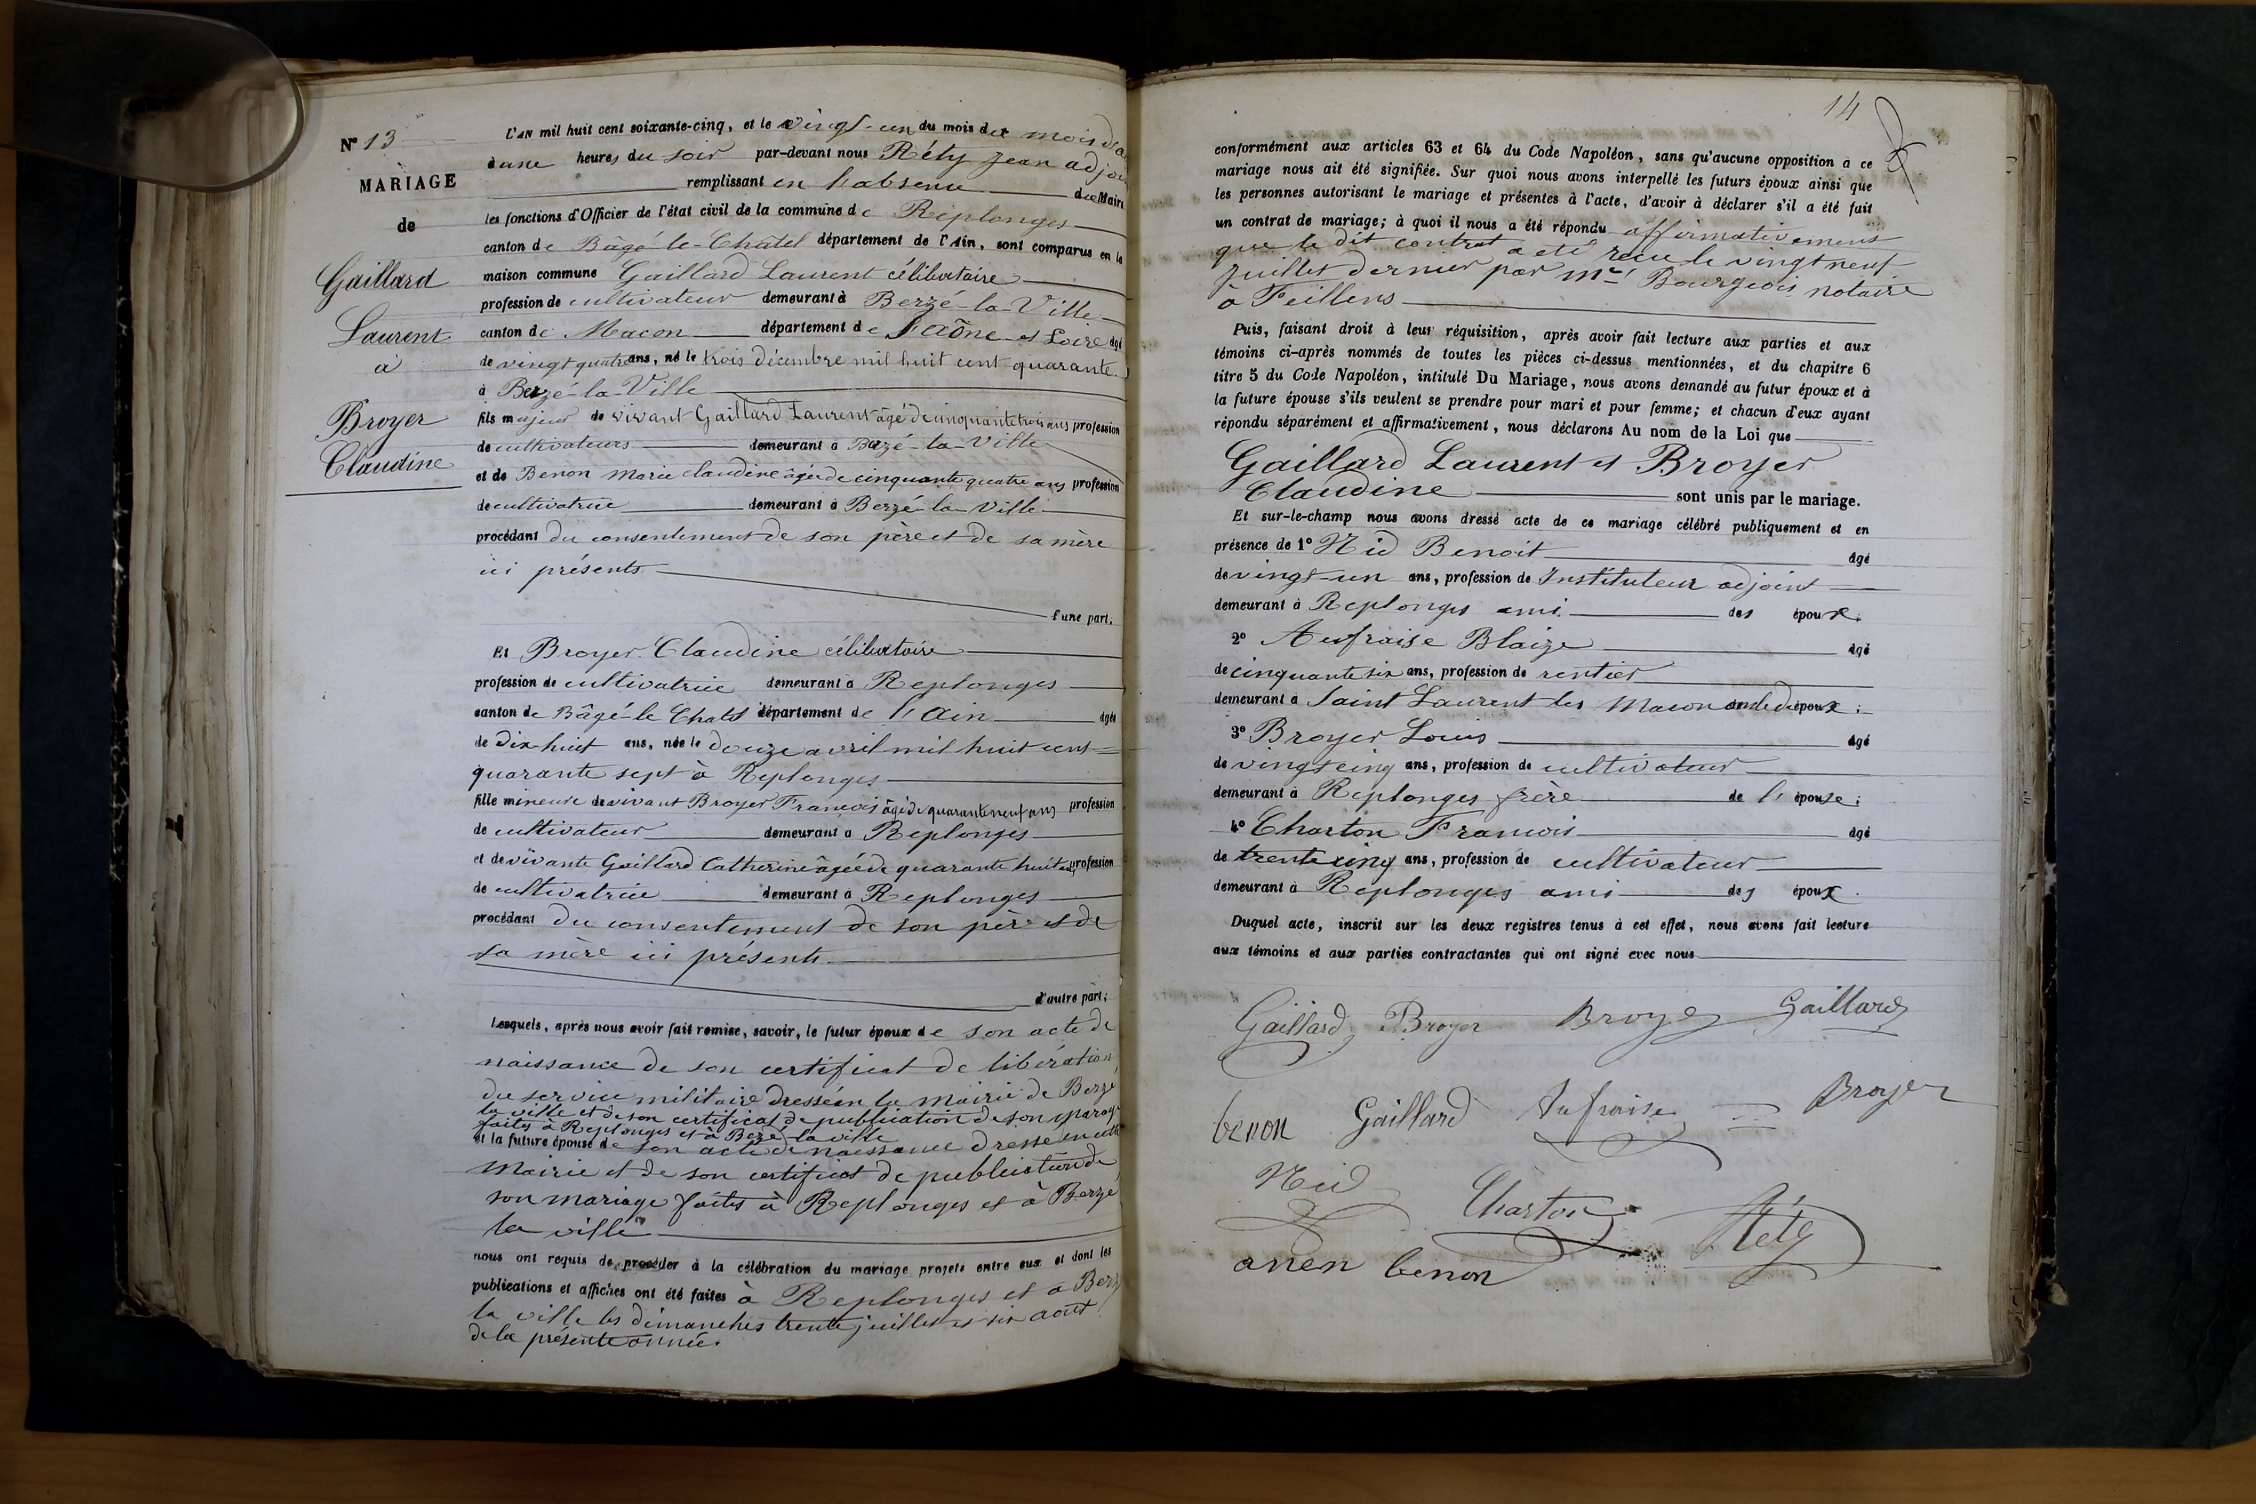 Nº 13
MARIAGE
de
Gaillard
Laurent
à
Broyer
Claudine
L'AN mil huit cent soixante-cinq, et le vingt-un du mois du mois d'a
à une heures du soir par-devant nous Réty Jean adjoi
remplissant en l'absence du Maire
les fonctions d'Officier de l'état civil de la commune de Replonges
canton de Bâgé-le-Châtel département de l'Ain, sont comparus en la
maison commune Gaillard Laurent célibataire
profession de cultivateur demeurant à Berzé-la-Ville
canton de Macon département de Saône et Loire âgé
de vingt quatre ans, né le trois décembre mil huit cent quarante
à Berzé-la-Ville
fils majeur de vivant Gaillard Laurent âgé de cinquante trois ans profession
de cultivateurs demeurant à Berzé-la-Ville
et de Benon Marie Claudine âgée de cinquante quatre ans profession
de cultivatrice demeurant à Berzé-la-Ville
procédant du consentement de son père et de sa mère
ici présents
d'une part;
Et Broyer Claudine célibataire
profession de cultivatrice demeurant à Replonges
canton de Bâgé-le Chatel département de l'Ain âgée
de dix-huit ans, née le douze avril mil huit cent
quarante sept à Replonges
fille mineure de vivant Broyer Francois âgé de quarante neuf ans profession
de cultivateur demeurant à Replonges
et de vivante Gaillard Catherine âgée de quarante huit ans profession
de cultivatrice demeurant à Replonges
procédant du consentement de son père et de
sa mère ici présents
d'autre part;
Lesquels, après nous avoir fait remise, savoir, le futur époux de son acte de
naissance de son certificat de libération
du service militaire dressé en la mairie de Berzé
la ville et de son certificat de publication de son mariage
faites à Replonges et à Berzé la ville
et la future épouse de son acte de naissance dressé en cette
Mairie et de son certificat de publication de
son mariage faites à Replonges et à Berzé
la ville
nous ont requis de procéder à la célébration du mariage projeté entre eux et dont les
publications et affiches ont été faites à Replonges et à Berzé
la ville les dimanches trente juillet et six août
de la présente année.
14
conformément aux articles 63 et 64 du Code Napoléon, sans qu'aucune opposition à ce
mariage nous ait été signifiée. Sur quoi nous avons interpellé les futurs époux ainsi que
les personnes autorisant le mariage et présentes à l'acte, d'avoir à déclarer s'il a été fait
un contrat de mariage; à quoi il nous a été répondu affirmativement
que le dit contrat a été reçu le vingt neuf
juillet dernier par Me Bourgeois notaire
à Feillens
Puis, faisant droit à leur réquisition, après avoir fait lecture aux parties et aux
témoins ci-après nommés de toutes les pièces ci-dessus mentionnées, et du chapitre 6
titre 5 du Code Napoléon, intitulé Du Mariage, nous avons demandé au futur époux et à
la future épouse s'ils veulent se prendre pour mari et pour femme; et chacun d'eux ayant
répondu séparément et affirmativement, nous déclarons Au nom de la Loi que
Gaillard Laurent et Broyer
Claudine sont unis par le mariage.
Et sur-le-champ nous avons dressé acte de ce mariage célébré publiquement et en
présence de 1º Nid Benoit âgé
de vingt-un ans, profession de Instituteur adjoint
demeurant à Replonges ami des époux.
2º Aufraise Blaize âgé
de cinquante six ans, profession de rentier
demeurant à Saint Laurent les Macon oncle de époux;
3º Broyer Louis âgé
de vingt cinq ans, profession de cultivateur
demeurant à Replonges frère de l'épouse;
4º Charton Francois âgé
de trente cinq ans, profession de cultivateur
demeurant à Replonges ami des époux.
Duquel acte, inscrit sur les deux registres tenus à cet effet, nous avons fait lecture
aux témoins et aux parties contractantes qui ont signé avec nous
Gaillard Broyer Broyer Gaillard
benon Gaillard Aufraise Broyer
Nid Charton Réty
benon